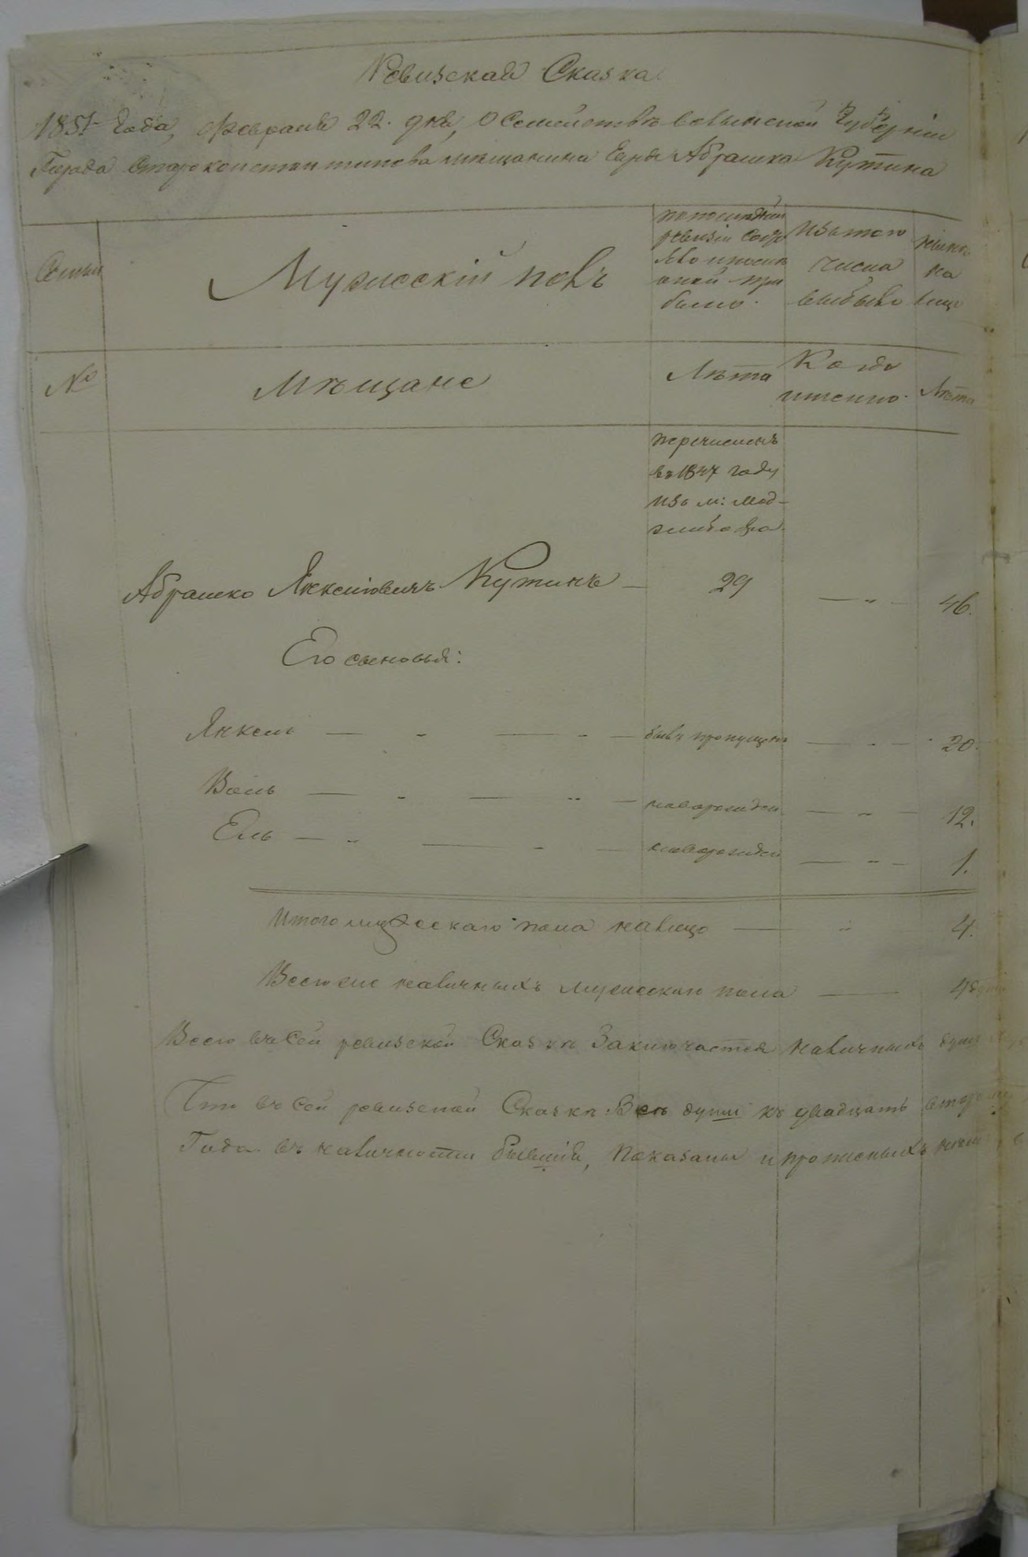 Ревизская Сказка
1851 Года, Февраля 22. дня, О Семействѣ Волынской Губерніи
Города Староконстантинова мѣщанина Еврея Абрашка Кутина
Семьи
Мужескій полъ
по последней
ревизіи состо
было.
Изъ того
числа
выбыло
нынѣ
на
лицо
№
Мѣщане
Лѣта
Когда
именно.
Лѣта
перечисленъ
въ 1847 году
изъ м:
Абрашко Янкеліовичъ Кутинъ — 29 — „ — 46.
Его сыновья:
Янкель — „ — „ — былъ пропущенъ — „ — 20.
Воль — „ — „ — новорожден — „ — 12.
Ель — „ — „ — новорожден — „ — 1.
Итого мужескаго пола налицо — „ 4.
Всего же наличныхъ мужескаго пола — 4
Всего въ сей ревизской Сказкѣ Заключается наличныхъ душъ
Что въ сей ревизской Сказкѣ Всѣ души къ двадцать
Года въ наличности бывшія, показаны и прописныхъ